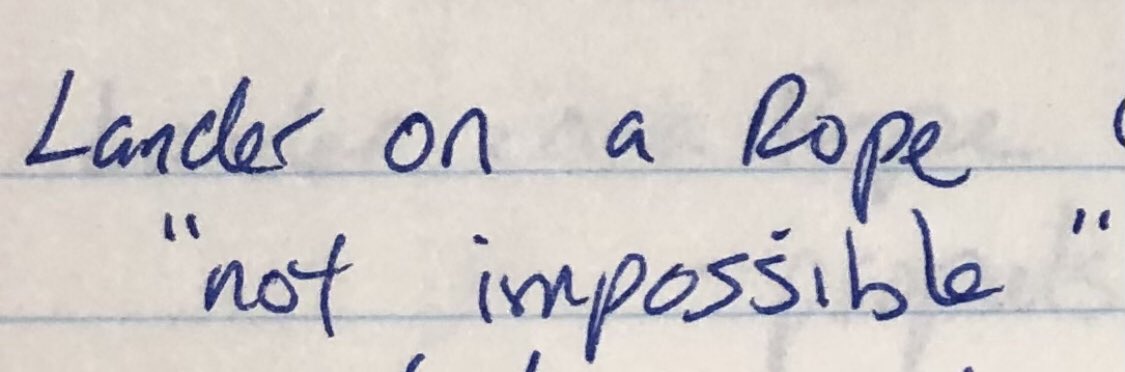 Lander on a Rope
"not impossible"